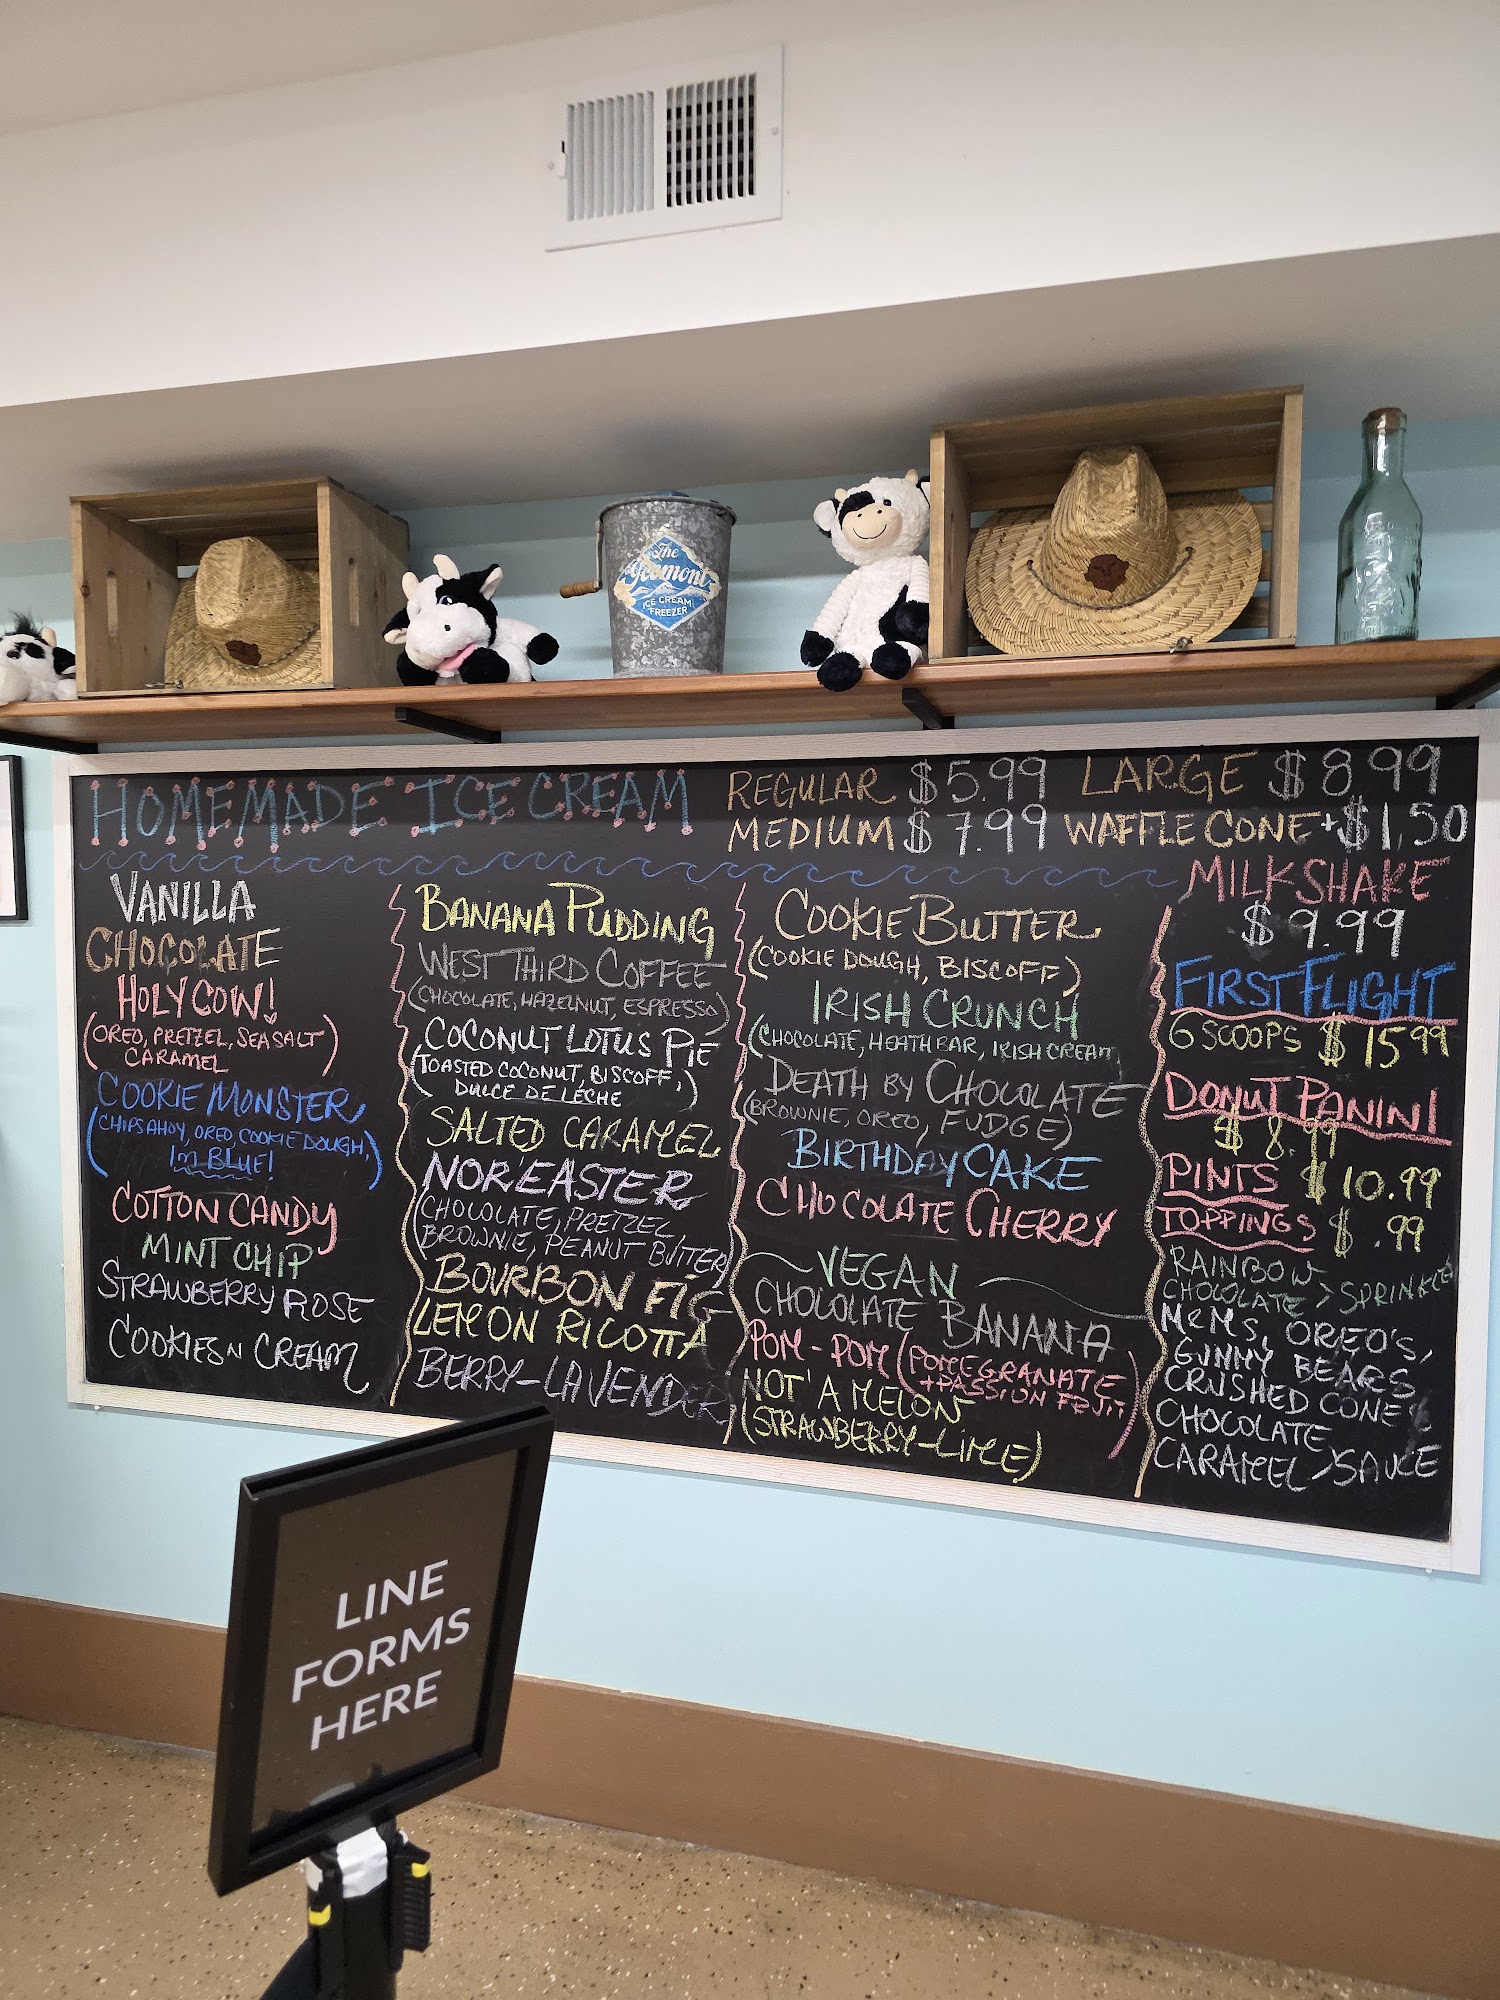 The
ICE CREAM
FREEZER
HOMEMADE ICE CREAM
REGULAR $5.99 LARGE $8.99
MEDIUM $7.99 WAFFLE CONE +$1.50
VANILLA
CHOCOLATE
HOLY COW!
(OREO, PRETZEL, SEA SALT
CARAMEL)
COOKIE MONSTER
(CHIPS AHOY, OREO, COOKIE DOUGH,
IM BLUE!)
COTTON CANDY
MINT CHIP
STRAWBERRY ROSE
COOKIES N CREAM
BANANA PUDDING
WEST THIRD COFFEE
(CHOCOLATE, HAZELNUT, ESPRESSO)
COCONUT LOTUS PIE
(TOASTED COCONUT, BISCOFF,
DULCE DE LÉCHE)
SALTED CARAMEL
NOREASTER
(CHOCOLATE, PRETZEL,
BROWNIE, PEANUT BUTTER)
BOURBON FIG
LEMON RICOTTA
BERRY-LAVENDER
COOKIE BUTTER
(COOKIE DOUGH, BISCOFF)
IRISH CRUNCH
(CHOCOLATE, HEATH BAR, IRISH CREAM)
DEATH BY CHOCOLATE
(BROWNIE, OREO, FUDGE)
BIRTHDAY CAKE
CHOCOLATE CHERRY
VEGAN
CHOCOLATE BANANA
POM-POM (POMEGRANATE
+PASSION FRUIT)
NOT A MELON
(STRAWBERRY-LIME)
MILKSHAKE
$9.99
FIRST FLIGHT
6 SCOOPS $15.99
DONUT PANINI
$8.99
PINTS $10.99
TOPPINGS $.99
RAINBOW
CHOCOLATE > SPRINKLE
M&MS, OREO'S,
GUMMY BEARS
CRUSHED CONE
CHOCOLATE
CARAMEL > SAUCE
LINE
FORMS
HERE